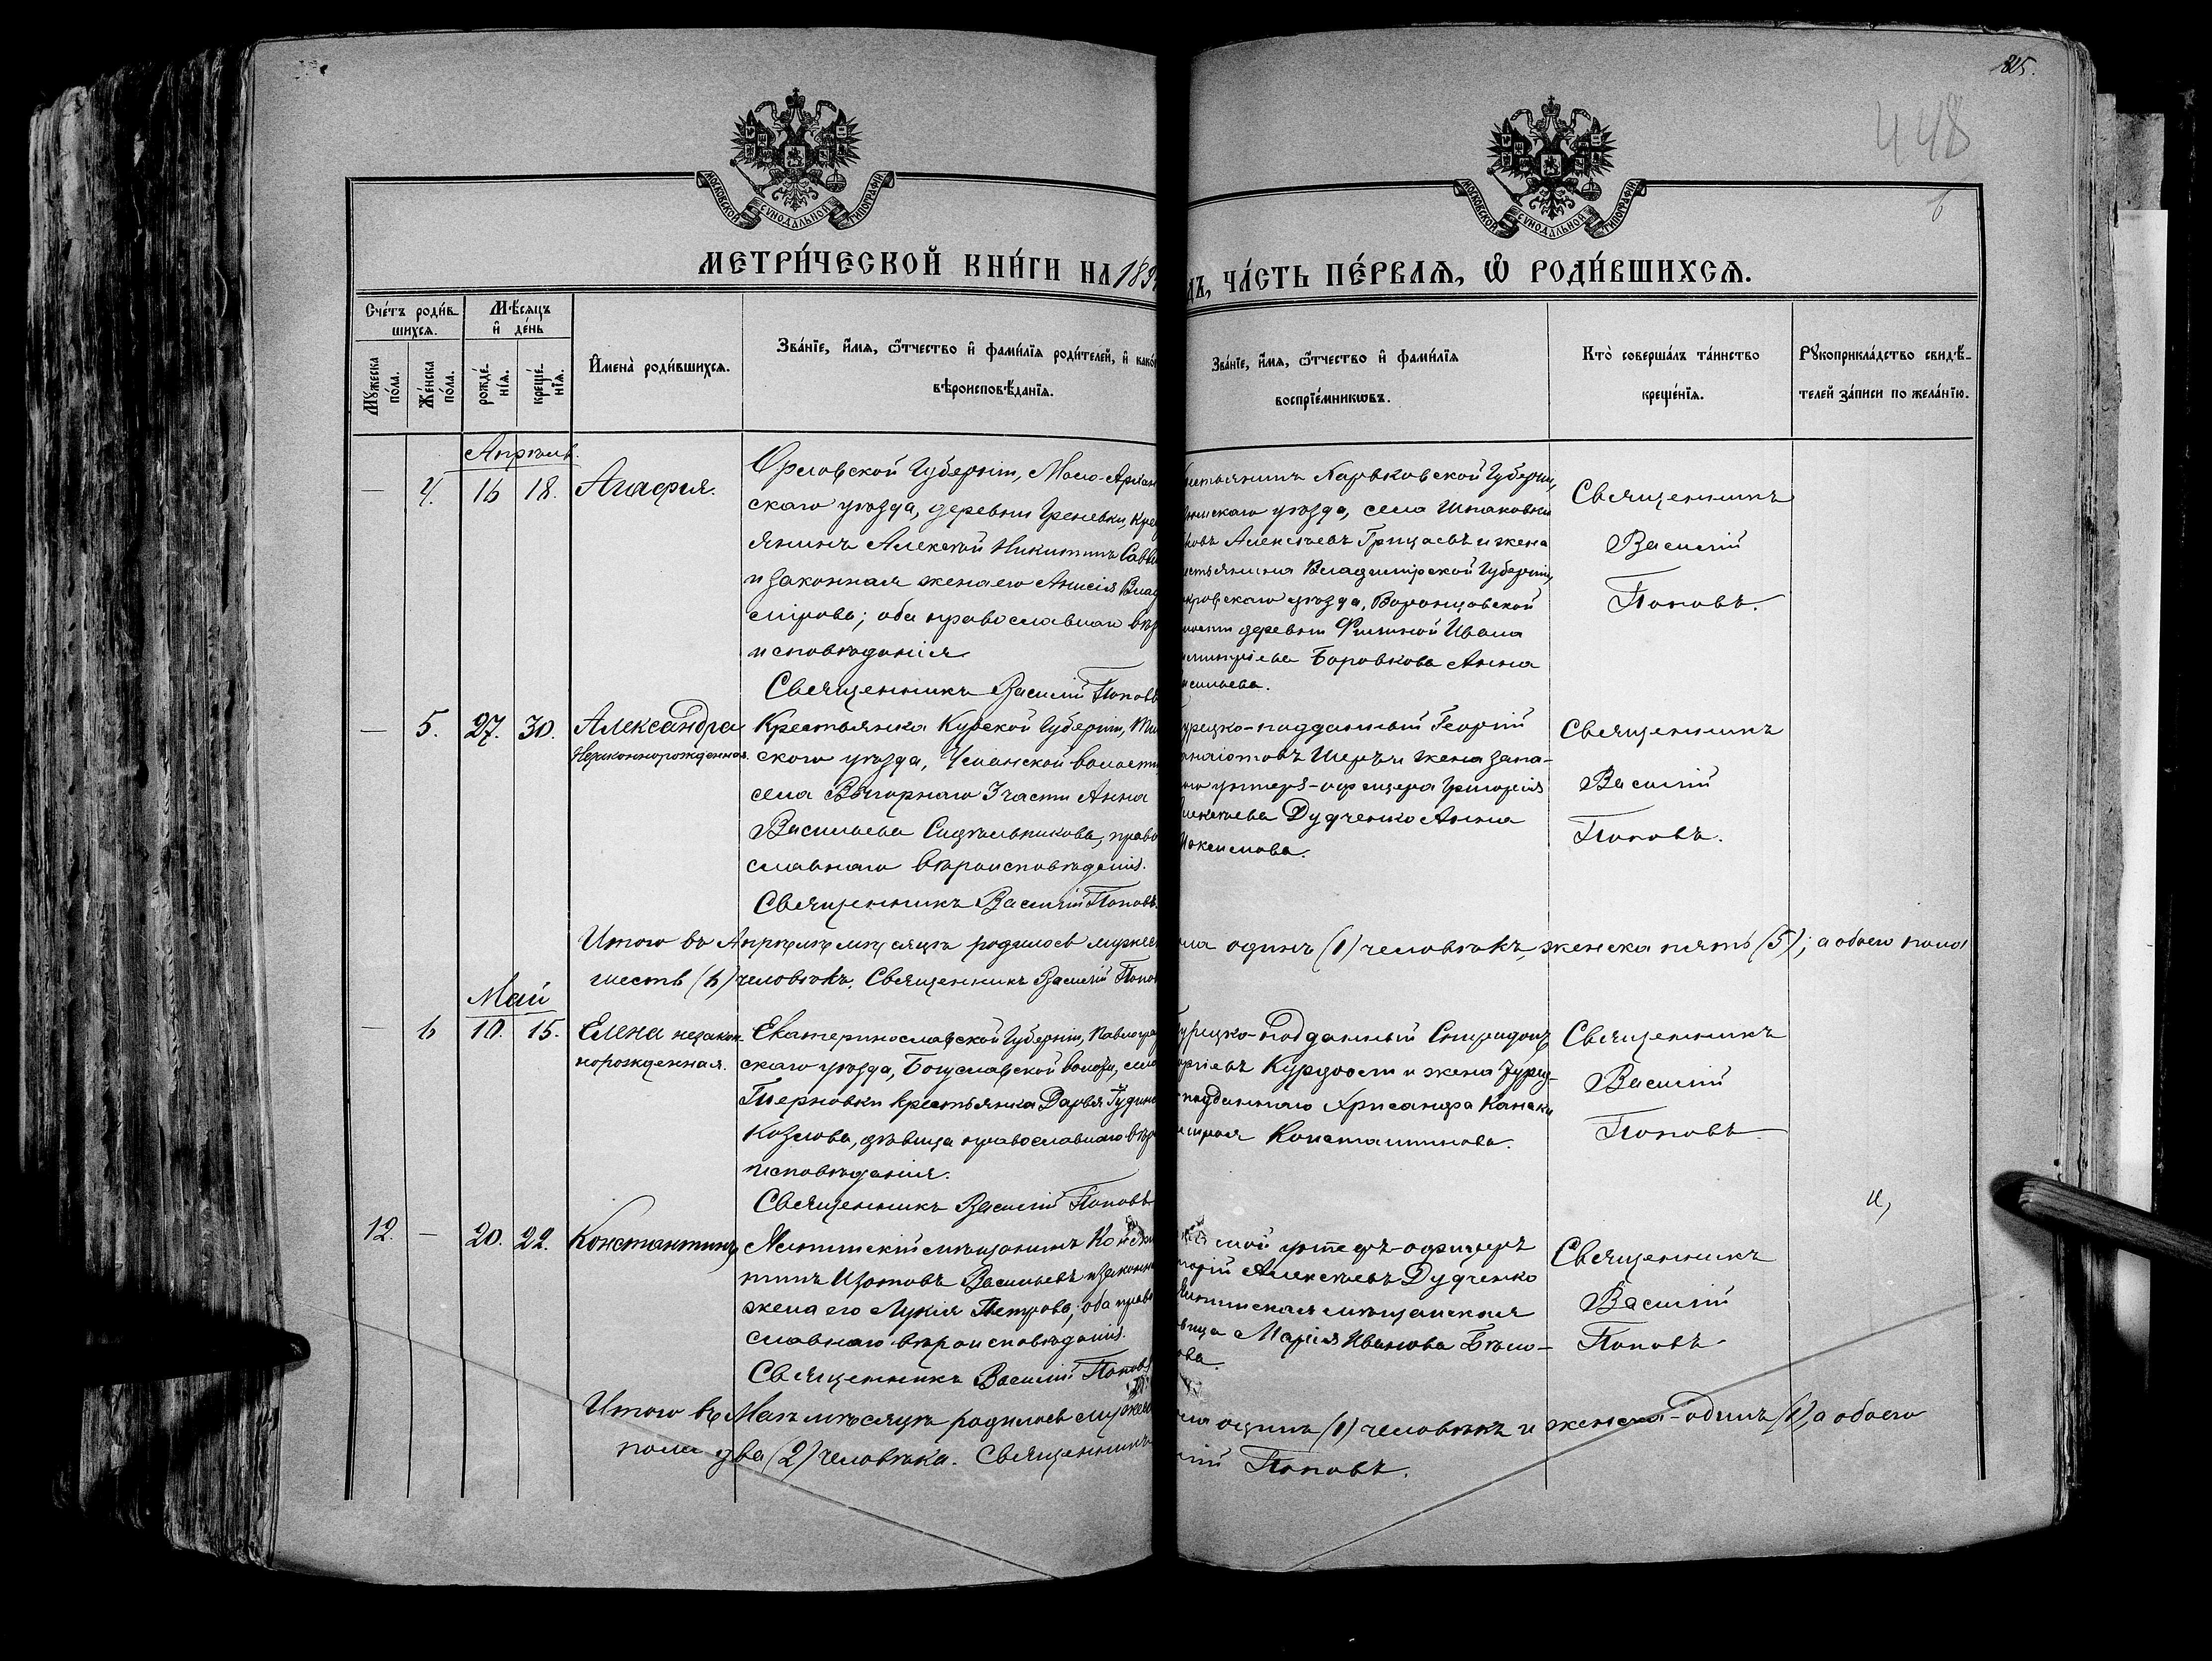 815.
448
6
МОСКОВСКОЙ СѴНОДАЛЬНОЙ ТИПОГРАФІИ
МОСКОВСКОЙ СѴНОДАЛЬНОЙ ТИПОГРАФІИ
МЕТРИ́ЧЕСКОЙ КНИ́ГИ НА 189
ДЪ, ЧА́СТЬ ПЕ́РВАѦ, Ѽ РОДИ́ВШИХСѦ.
Сче́тъ роди́в-
шихсѧ.
Мѣ́сѧцъ
и҆ де́нь
Мꙋжеска по́ла.
Же́нска по́ла.
рожде́нїѧ.
креще́нїѧ.
И҆мена̀ роди́вшихсѧ.
Зва́нїе, и҆́мѧ, ѻ҆́тчество и҆ фамі́лїѧ роди́телей, и҆ како́
вѣроисповѣ́данїѧ.
Зва́нїе, и҆́мѧ, ѻ҆́тчество и҆ фамі́лїѧ
воспрїе́мникѡвъ.
Кто̀ соверша́лъ та́инство
креще́нїѧ.
Рꙋкоприкла́дство свидѣ́-
телей за́писи по жела́нїю.
Апрѣль.
— 4. 16 18. Агафія.
Орловской Губерніи, Мало-Архан
скаго уѣзда, деревни Греневки, Кре
янинъ Алексѣй Никитинъ Савв
и законная жена его Анисія Влад
мірова; оба православнаго вѣр
исповѣданія
Священникъ Василій Поповъ
стьянинъ Харьковской Губерніи,
скаго уѣзда, села Шпаковки
ковъ Алексѣевъ Грицаевъ и жена
стьянина Владимірской Губерніи,
кровскаго уѣзда, Воронцовской
лости деревни Филиной Ивана
митріева Боровкова Анна
асильева.
Священникъ
Василій
Поповъ.
— 5. 27. 30. Александра
Незаконнорожденная.
Крестьянка Курской Губерніи, Ти
скаго уѣзда, Успанской волости
села Выгорнаго 3 части Анна
Васильева Сидѣльникова, право
славнаго вѣроисповѣданія.
Священникъ Василій Поповъ.
урецко-подданный Георгій
анаіотовъ Шеръ и жена запа-
наго унтеръ-офицера Григорія
лексѣева Дудченко Анна
Максимова.
Священникъ
Василій
Поповъ.
Итого въ Апрѣлѣ мѣсяцѣ родилось мужес
ола одинъ (1) человѣкъ, женска пять (5); а обоего пола
шесть (6) человѣкъ. Священникъ Василій Попов
Май
— 6 10. 15. Елена незакон-
норожденная.
Екатеринославской Губерніи, Павлоград
скаго уѣзда, Богуславской волости, села
Терновки крестьянка Дарья
Козлова, дѣвица православнаго вѣр
исповѣданія.
Священникъ Василій Поповъ
Турецко-подданный Спиридонъ
оргіевъ Курдооглі и жена Турец-
подданнаго Хрисанфа Канаки
Константинова.
Священникъ
Василій
Поповъ
12. — 20. 22. Константинъ
Ялтинскій мѣщанинъ Констан
тинъ Изотовъ Васильевъ и законн
жена его Лукія Петрова; оба право
славнаго вѣроисповѣданія.
Священникъ Василій Поповъ
сной унтеръ-офицеръ
горій Алексѣевъ Дудченко
Ялтинская мѣщанская
вица Марія Иванова Бѣло-
ова.
Священникъ
Василій
Поповъ
Итого въ Маѣ мѣсяцѣ родилось мужеска
ола одинъ (1) человѣкъ и женска - одинъ (1), а обоего
пола два (2) человѣка. Священникъ
лій Поповъ.